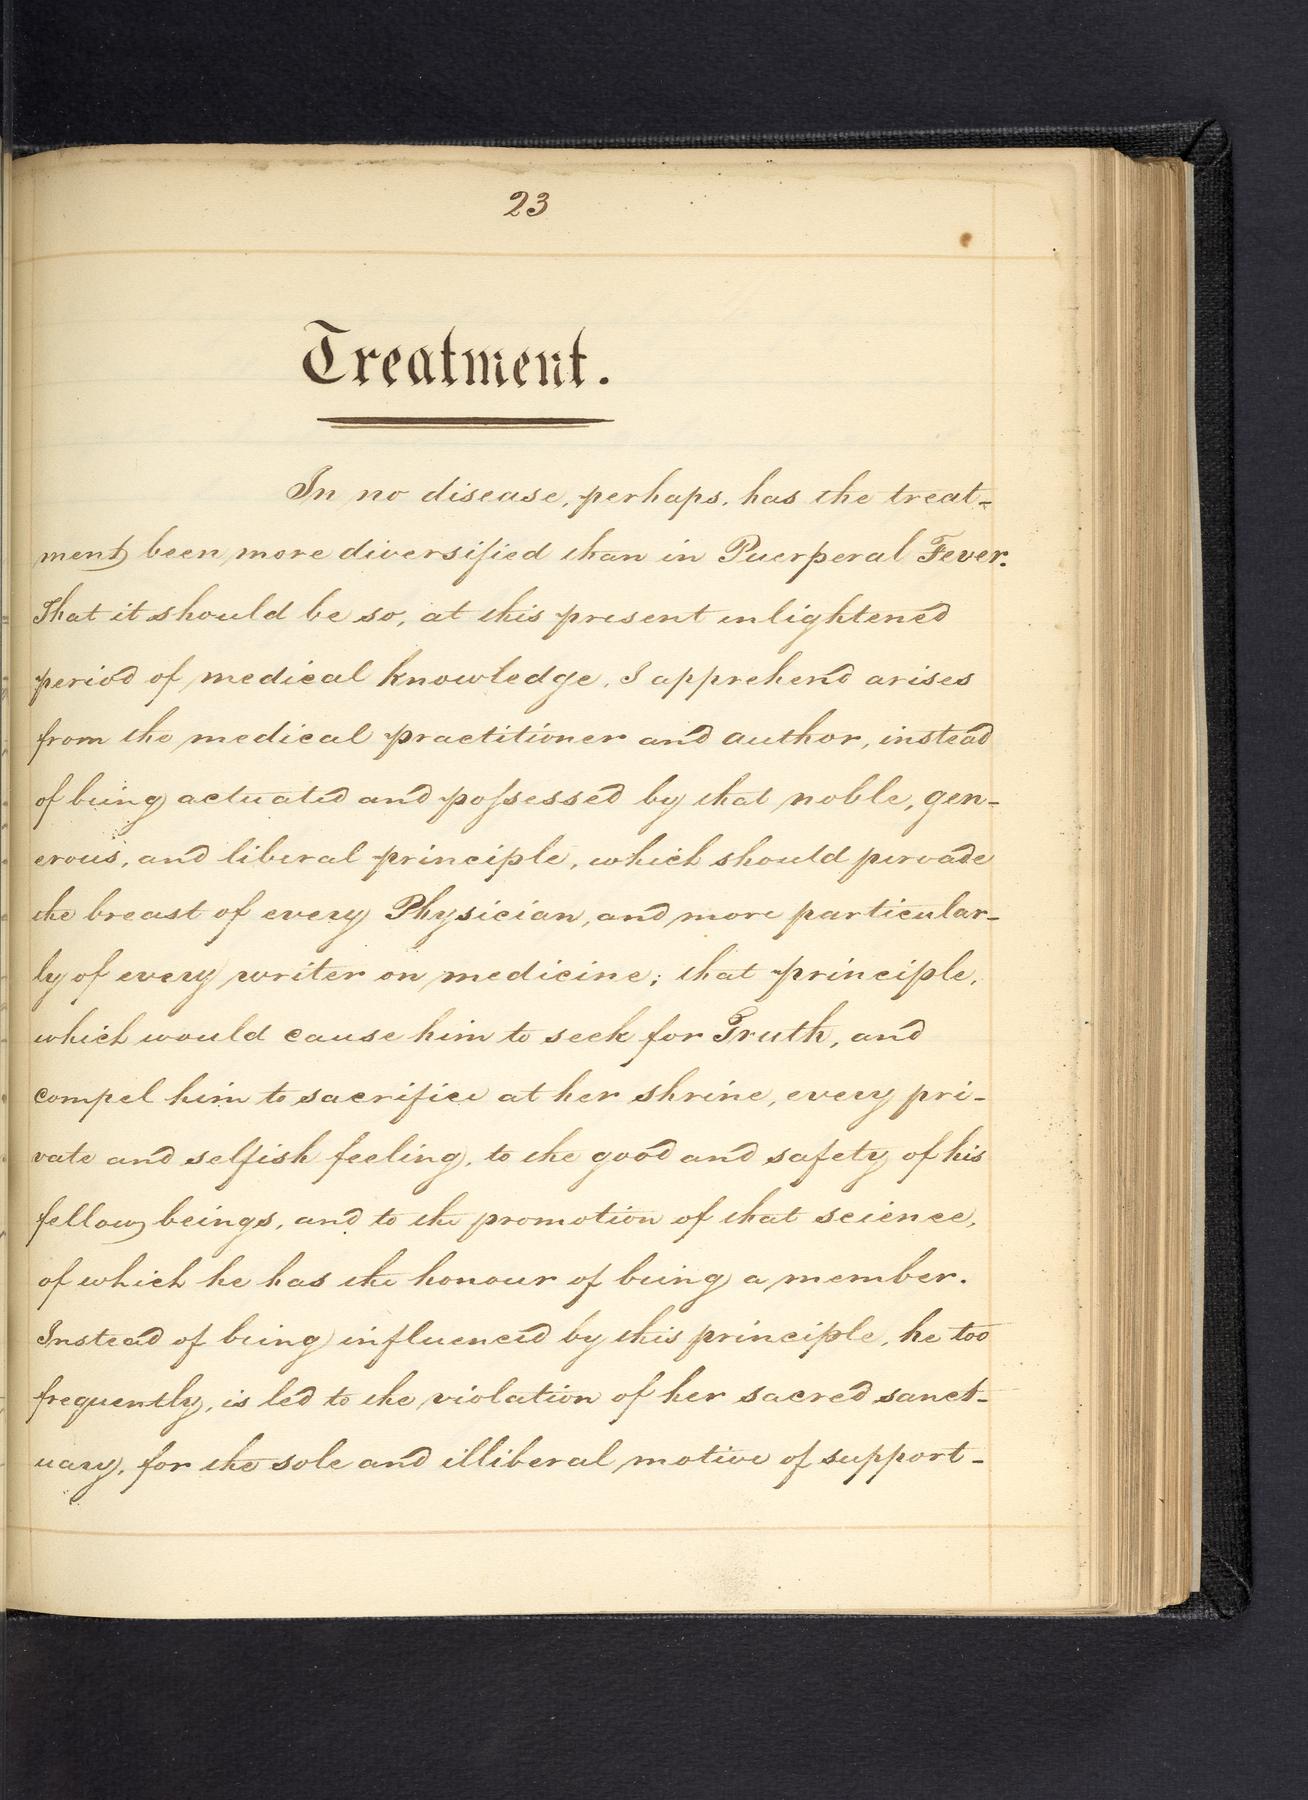 23
Treatment.
In no disease, perhaps, has the treat-
ment been more diversified than in Puerperal Fever.
That it should be so, at this present enlightened
period of medical knowledge, I apprehend arises
from the medical practitioner and author, instead
of being actuated and possessed by that noble, gen-
erous, and liberal principle, which should pervade
the breast of every Physician, and more particular-
ly of every writer on medicine; that principle,
which would cause him to seek for Truth, and
compel him to sacrifice at her shrine, every pri-
vate and selfish feeling, to the good and safety of his
fellow beings, and to the promotion of that science,
of which he has the honour of being a member.
Instead of being influenced by this principle, he too
frequently, is led to the violation of her sacred sanct-
uary, for the sole and illiberal motive of support-